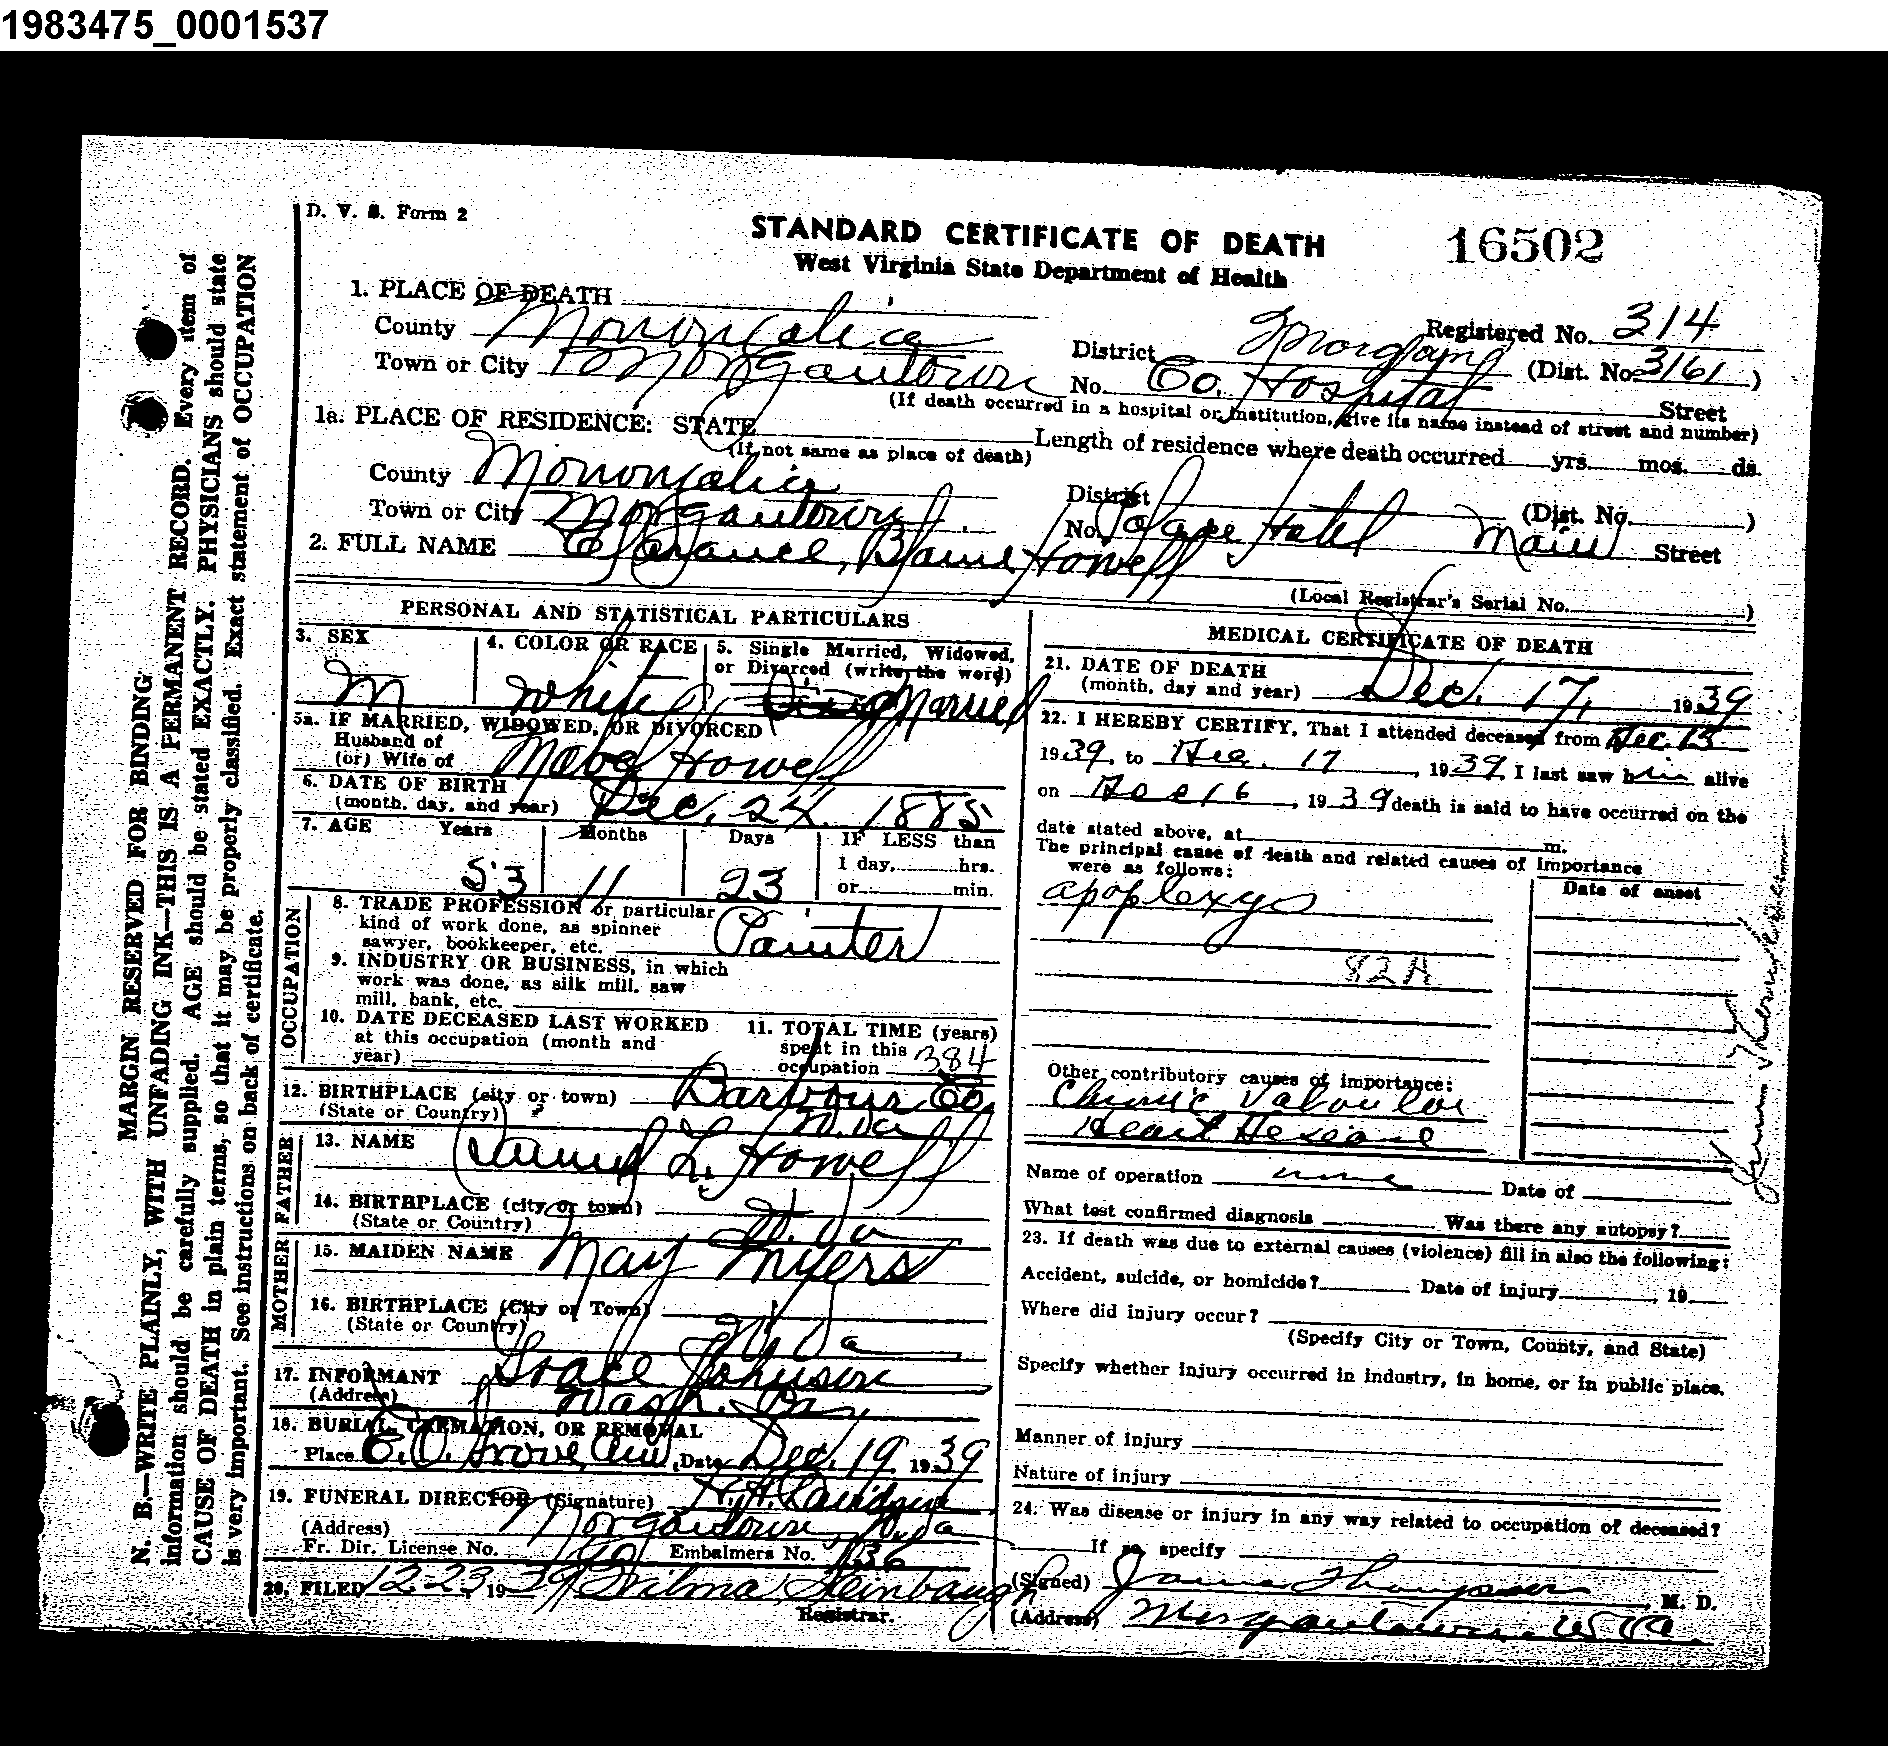 1983475_0001537
D. V. S. Form 2
STANDARD CERTIFICATE OF DEATH
16502
West Virginia State Department of Health
1. PLACE OF DEATH
Registered No. 314
County Monongalia
District Morgan
(Dist. No. 3161)
Town or City Morgantown
No. Co. Hospital Street
(If death occurred in a hospital or institution, give its name instead of street and number)
1a. PLACE OF RESIDENCE: STATE
(If not same as place of death)
Length of residence where death occurred yrs. mos. ds.
County Monongalia
District
(Dist. No. )
Town or City Morgantown
No. Palace Hotel Main Street
2. FULL NAME Clarance, Blaine Howell
(Local Registrar's Serial No. )
PERSONAL AND STATISTICAL PARTICULARS
3. SEX
M
4. COLOR OR RACE
White
5. Single Married, Widowed,
or Divorced (write the word)
Married
5a. IF MARRIED, WIDOWED, OR DIVORCED
Husband of
(or) Wife of Mabel Howell
6. DATE OF BIRTH
(month, day, and year) Dec. 24 1885
7. AGE Years Months Days IF LESS than
1 day, hrs.
or min.
53 11 23
OCCUPATION
8. TRADE PROFESSION or particular
kind of work done, as spinner
sawyer, bookkeeper, etc. Painter
9. INDUSTRY OR BUSINESS, in which
work was done, as silk mill, saw
mill, bank, etc.
10. DATE DECEASED LAST WORKED
at this occupation (month and
year)
11. TOTAL TIME (years)
spent in this
occupation 384
12. BIRTHPLACE (city or town) Barbour Co.
(State or Country) W. Va
FATHER
13. NAME
Samuel L. Howell
14. BIRTHPLACE (city or town)
(State or Country) W. Va
MOTHER
15. MAIDEN NAME May Myers
16. BIRTHPLACE (City or Town)
(State or Country) W. Va
17. INFORMANT Grace Johnson
(Address) Wash. Pa
18. BURIAL, CREMATION, OR REMOVAL
Place E. O. Grove Cem Date Dec. 19, 1939
19. FUNERAL DIRECTOR (Signature)
(Address) Morgantown, W. Va
Fr. Dir. License No. Embalmers No. 136
20. FILED 12-23, 1939 Wilma Steinbaugh
Registrar.
MEDICAL CERTIFICATE OF DEATH
21. DATE OF DEATH
(month, day and year) Dec. 17, 1939
22. I HEREBY CERTIFY, That I attended deceased from Dec. 13
1939, to Dec. 17, 1939, I last saw him alive
on Dec 16, 1939 death is said to have occurred on the
date stated above, at m.
The principal cause of death and related causes of importance
were as follows:
Date of onset
apoplexy
82A
Other contributory causes of importance:
Chronic Valvular
Heart Disease
Name of operation none Date of
What test confirmed diagnosis Was there any autopsy?
23. If death was due to external causes (violence) fill in also the following:
Accident, suicide, or homicide? Date of injury , 19
Where did injury occur?
(Specify City or Town, County, and State)
Specify whether injury occurred in industry, in home, or in public place.
Manner of injury
Nature of injury
24. Was disease or injury in any way related to occupation of deceased?
If so, specify
(Signed) Thompson, M. D.
(Address) Morgantown, W Va.
MARGIN RESERVED FOR BINDING
N. B.—WRITE PLAINLY, WITH UNFADING INK—THIS IS A PERMANENT RECORD. Every item of
information should be carefully supplied. AGE should be stated EXACTLY. PHYSICIANS should state
CAUSE OF DEATH in plain terms, so that it may be properly classified. Exact statement of OCCUPATION
is very important. See instructions on back of certificate.